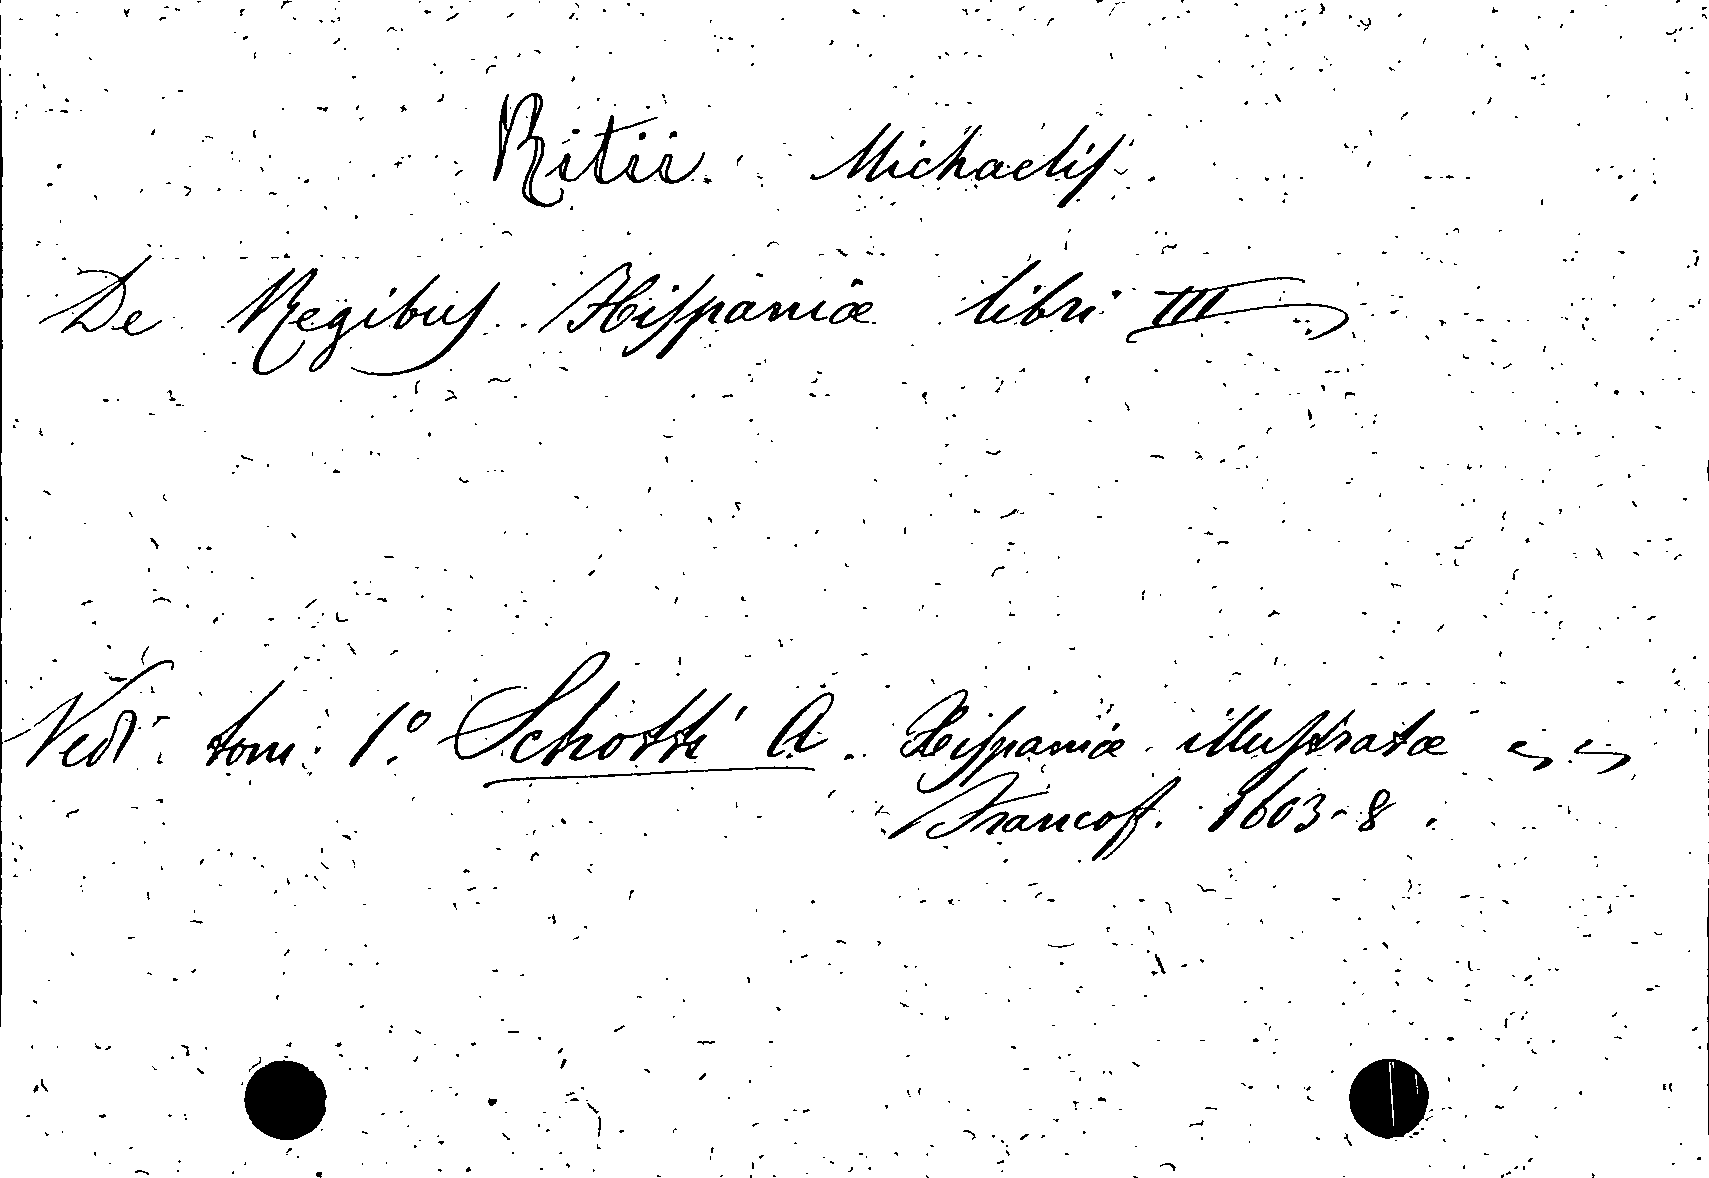 Ritii Michaelis.
De Regibus Hispaniæ libri III
Vedi tom. 1.º Schotti A. Hispaniæ illustratæ
Francof. 1603-8.